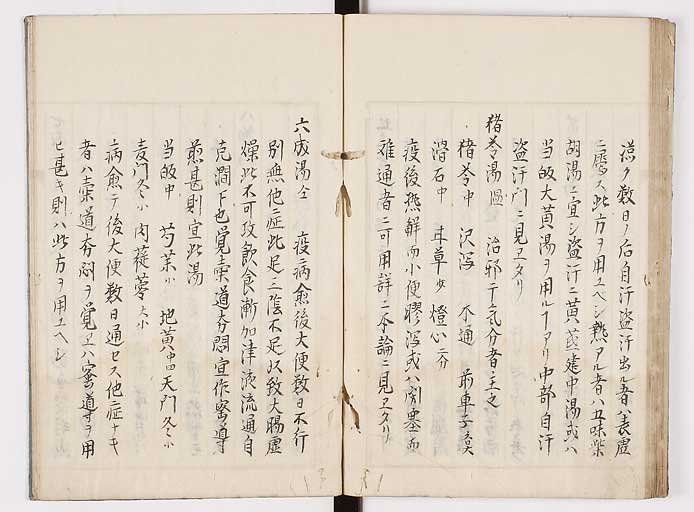 テ数日ノ后自汗盗汗出ル者ハ表虚
ニ属ス此方ヲ用ユヘシ熱アル者ハ五味柴
胡湯ニ宜シ盗汗ニ黄芪建中湯或ハ
当皈大黄湯ヲ用ルヿアリ中部自汗
盗汗門ニ見ヱタリ
猪苓湯 温 治邪干気分者主之
猪苓中 沢瀉 木通 前車子
滑石中 甘草少 燈心二分
疫後熱解而小便膠瀉或ハ閉塞而
难通者ニ可用詳ニ本論ニ見ヱタリ
六成湯 仝 疫病愈後大便数日不行
別無他症此足三陰不足以致大腸虚
燥此不可攻飲食漸加津液流通自
能潤下也覚棗道夯悶宜作蜜導
煎甚則宜此湯
当皈中 芍薬小 地黄中四 天門冬小
麦門冬小 肉蓯蓉大小
病愈テ後大便数日通セス他症ナキ
者ハ棗道夯悶ヲ覚ヱハ蜜導ヲ用
ヒ甚キ則ハ此方ヲ用ユヘシ